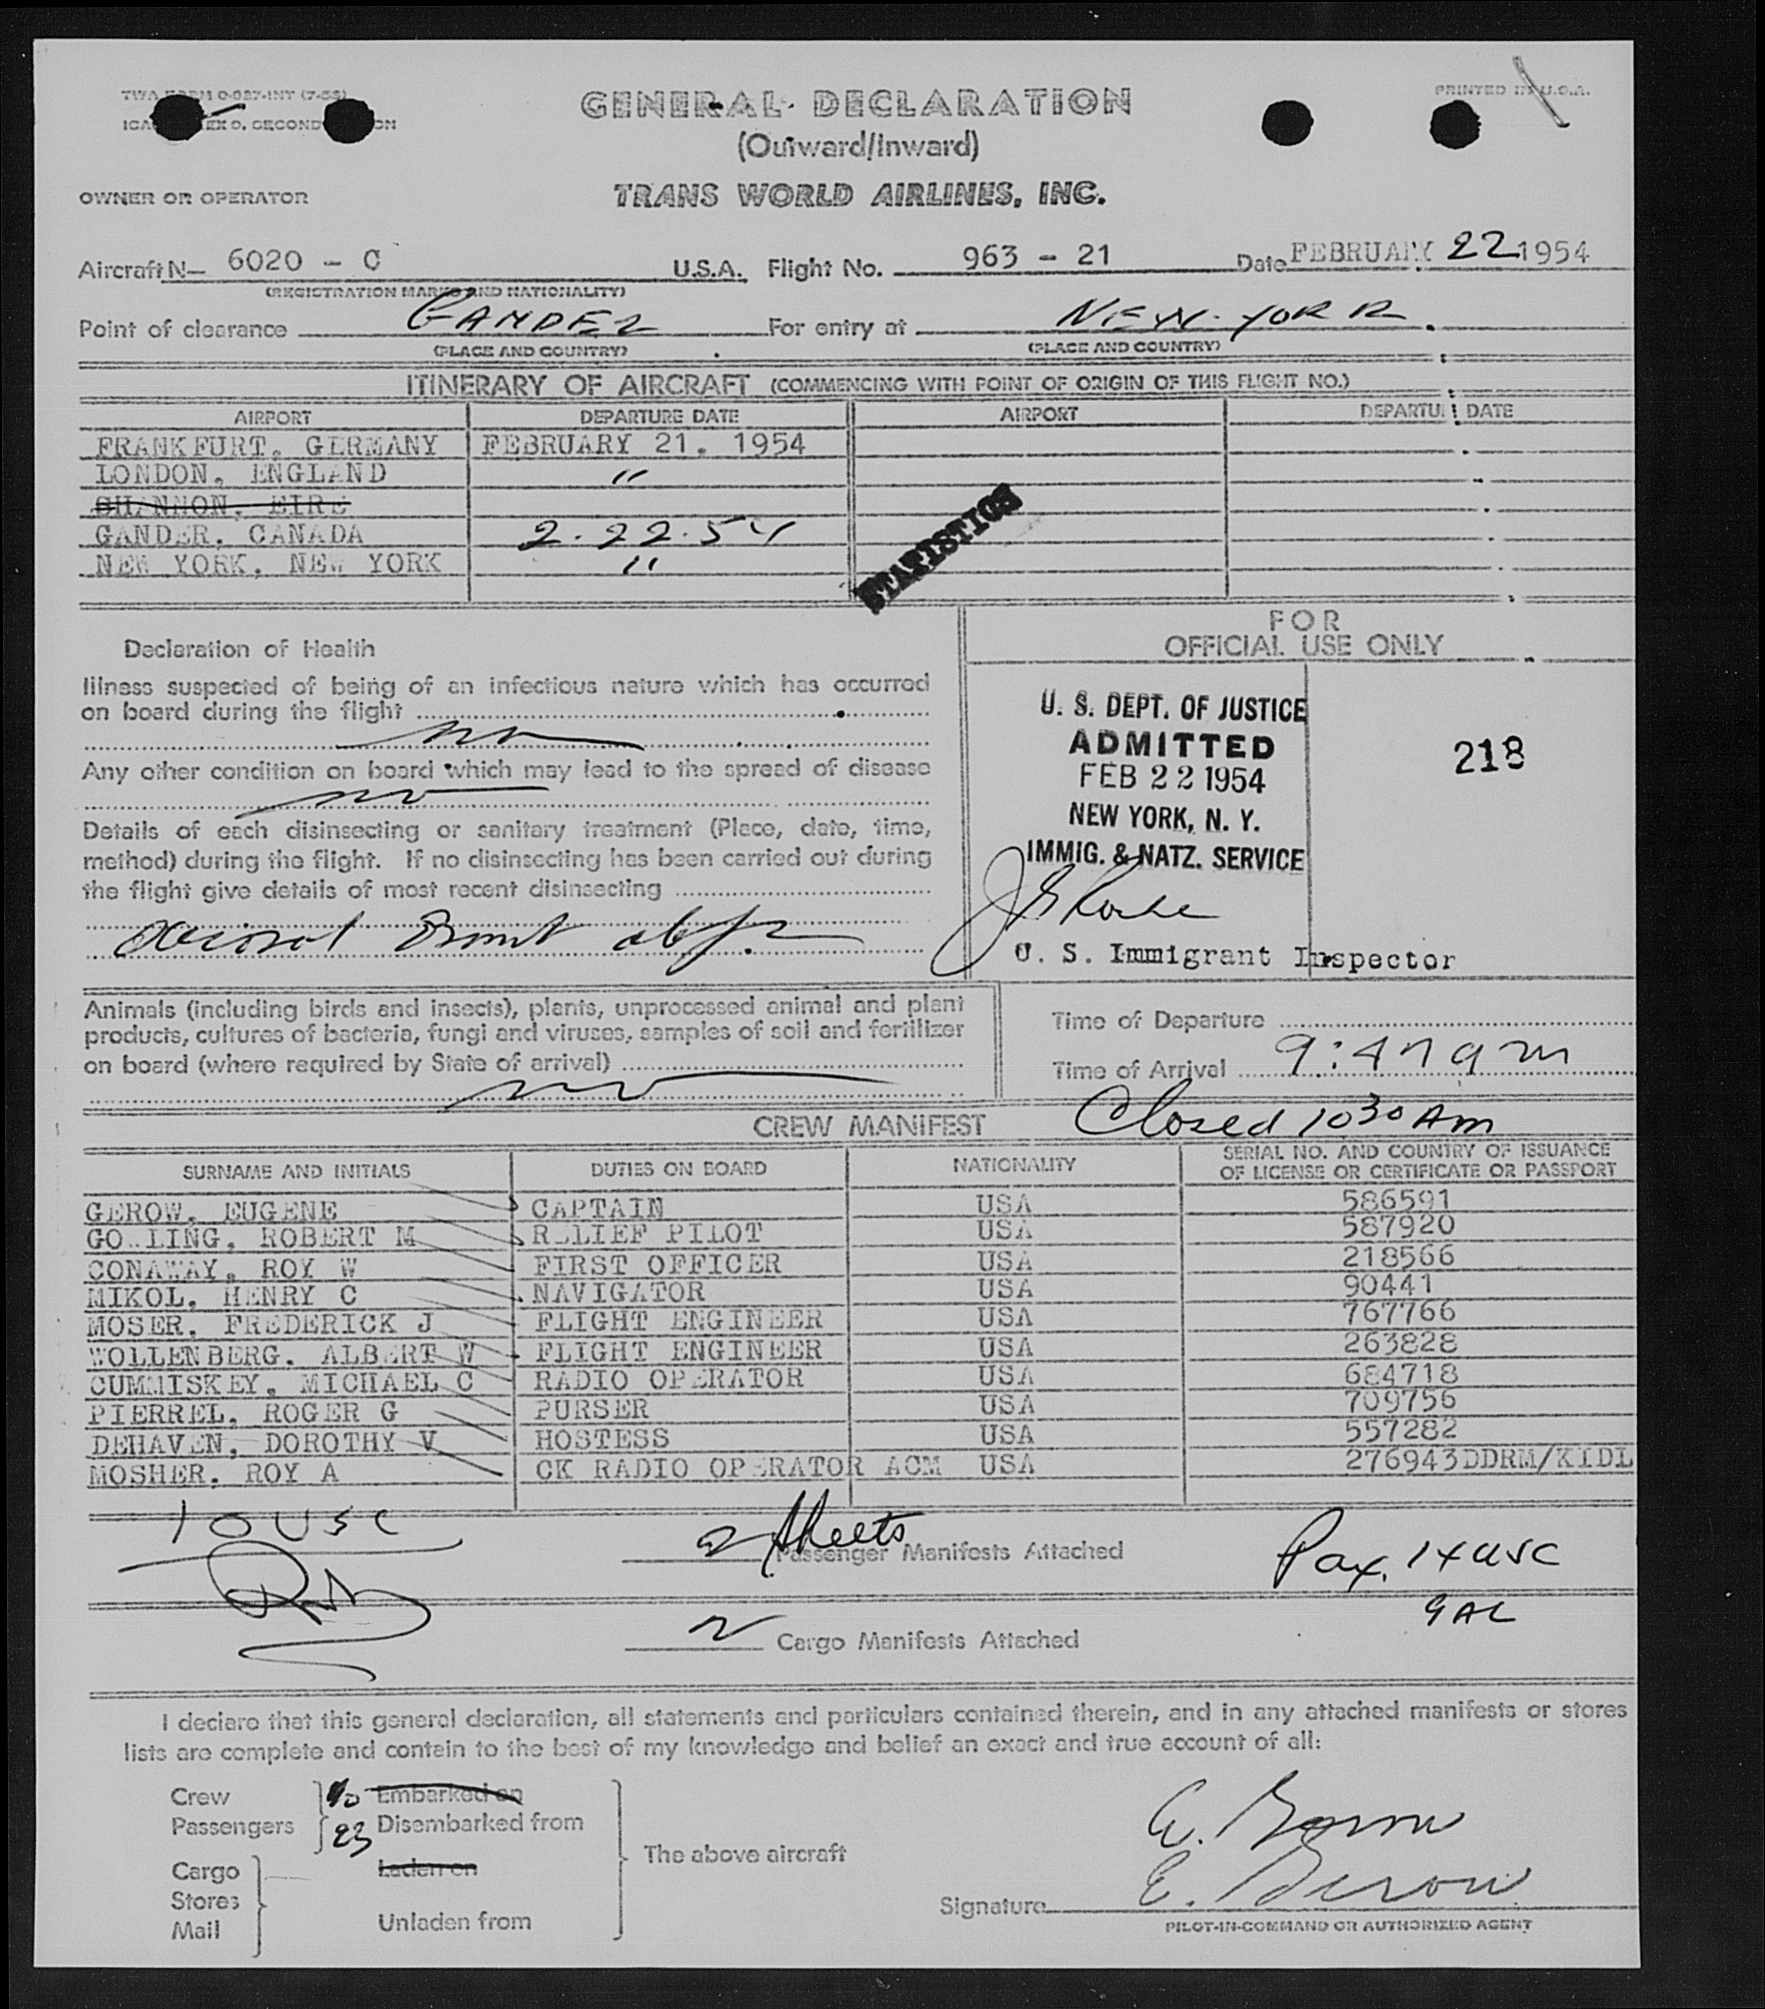 TWA FORM O-027-INT (7-53)
PRINTED IN U.S.A.
GENERAL DECLARATION
(Outward/Inward)
OWNER OR OPERATOR
TRANS WORLD AIRLINES, INC.
Aircraft N- 6020 - C U.S.A. Flight No. 963 - 21 Date FEBRUARY 22 1954
(REGISTRATION MARKS AND NATIONALITY)
Point of clearance GANDER For entry at NEW YORK
(PLACE AND COUNTRY) (PLACE AND COUNTRY)
ITINERARY OF AIRCRAFT (COMMENCING WITH POINT OF ORIGIN OF THIS FLIGHT NO.)
AIRPORT DEPARTURE DATE AIRPORT DEPARTU DATE
FRANKFURT, GERMANY FEBRUARY 21. 1954
LONDON, ENGLAND "
SHANNON, EIRE
GANDER, CANADA 2.22.54
NEW YORK, NEW YORK "
STATISTICS
FOR
OFFICIAL USE ONLY
Declaration of Health
Illness suspected of being of an infectious nature which has occurred
on board during the flight
no
Any other condition on board which may lead to the spread of disease
no
Details of each disinsecting or sanitary treatment (Place, date, time,
method) during the flight. If no disinsecting has been carried out during
the flight give details of most recent disinsecting
U. S. DEPT. OF JUSTICE
ADMITTED
FEB 22 1954
NEW YORK, N. Y.
IMMIG. & NATZ. SERVICE
U. S. Immigrant Inspector
218
Animals (including birds and insects), plants, unprocessed animal and plant
products, cultures of bacteria, fungi and viruses, samples of soil and fertilizer
on board (where required by State of arrival)
no
Time of Departure
Time of Arrival 9:47 am
CREW MANIFEST Closed 1030 AM
SURNAME AND INITIALS DUTIES ON BOARD NATIONALITY SERIAL NO. AND COUNTRY OF ISSUANCE
OF LICENSE OR CERTIFICATE OR PASSPORT
GEROW, EUGENE CAPTAIN USA 586591
GO LING, ROBERT M RELIEF PILOT USA 587920
CONAWAY, ROY W FIRST OFFICER USA 218566
MIKOL, HENRY C NAVIGATOR USA 90441
MOSER, FREDERICK J FLIGHT ENGINEER USA 767766
WOLLENBERG, ALBERT W FLIGHT ENGINEER USA 263828
CUMMISKEY, MICHAEL C RADIO OPERATOR USA 684718
PIERREL, ROGER G PURSER USA 709756
DEHAVEN, DOROTHY V HOSTESS USA 557282
MOSHER, ROY A CK RADIO OPERATOR ACM USA 276943DDRM/KIDL
10 USC
2 sheets Passenger Manifests Attached
Pax. 14 USC
9 AL
2 Cargo Manifests Attached
I declare that this general declaration, all statements and particulars contained therein, and in any attached manifests or stores
lists are complete and contain to the best of my knowledge and belief an exact and true account of all:
Crew 10 Embarked on
Passengers 23 Disembarked from
The above aircraft
Cargo Laden on
Stores
Mail Unladen from
E. Gerow
E. Gerow
Signature
PILOT-IN-COMMAND OR AUTHORIZED AGENT